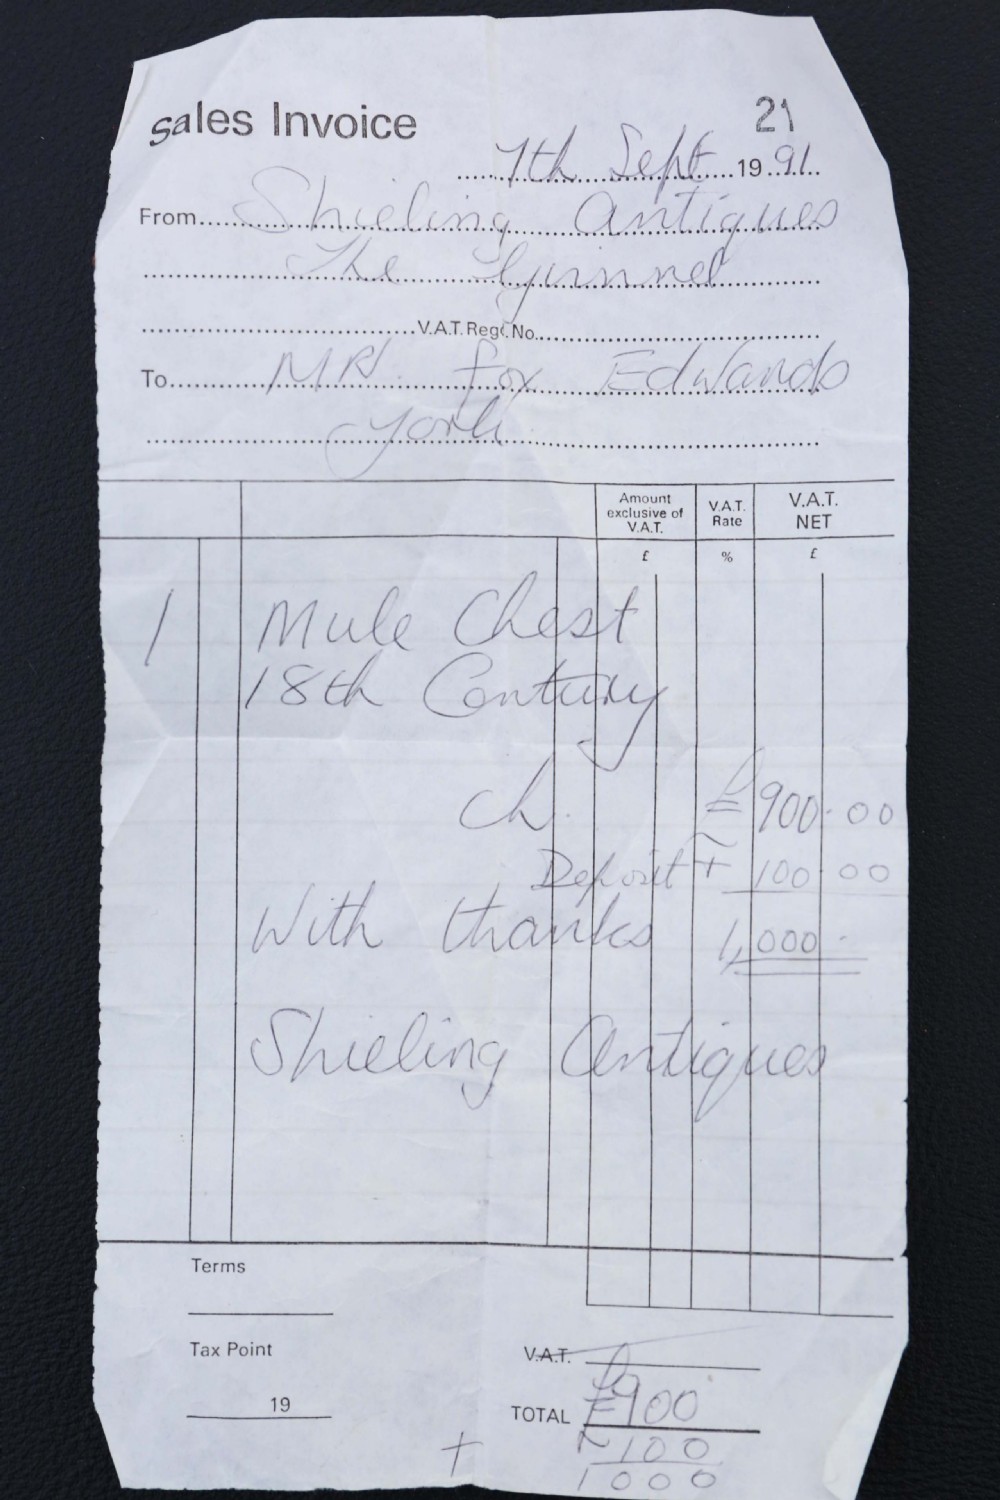 Sales Invoice 21
7th Sept 19 91
From Shieling Antiques
The Ginnel
V.A.T. Reg. No.
To MR Fox Edwards
York
Amount exclusive of V.A.T. V.A.T. Rate V.A.T. NET
£ % £
1 Mule Chest
18th Century
ch. £900.00
Deposit + 100.00
With thanks 1,000.
Shieling Antiques
Terms
Tax Point
V.A.T.
19
TOTAL £900
+ 100
1000